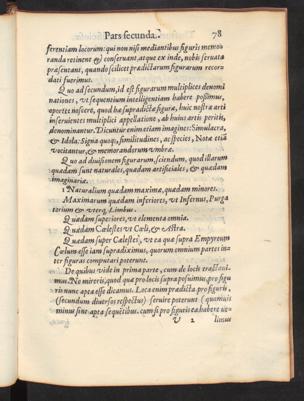 Pars secunda. 78
ferentiam locorum: qui non nisi mediantibus figuris memo
randa retinent & conseruant, atque ex inde, nobis seruata
præsentant, quando scilicet prædictarum figurarum recor
dati fuerimus.
Quo ad secundum, id est figurarum multiplices denomi
nationes, vt sequentium intelligentiam habere possimus,
oportet nosse, quod hæ supradictæ figuræ, huic nostræ arti
inseruientes multiplici appellatione, ab huius artis peritis,
denominantur. Dicuntur enim etiam imagines: Simulacra,
& Idola: Signa quoque, similitudines, ac species, Notæ etiã
vocitantur, & memorandorum vmbræ.
Quo ad diuisionem figurarum, sciendum, quod illarum
quædam sunt naturales, quædam artificiales, & quædam
imaginariæ.
1 Naturalium quædam maximæ, quædam minores.
Maximarum quædam inferiores, vt Infernus, Purga
torium & vterq; Limbus.
Quædam superiores, vt elementa omnia.
Quædam Cælestes vt Cæli, & Astra.
Quædam super Cælestes, vt ea quæ supra Empyreum
Cælum esse iam supradiximus, quorum omnium partes in
ter figuras computari poterunt.
De quibus vide in prima parte, cum de locis tractaui
mus. Ne mireris, quod quæ pro locis supra posuimus, pro figu
ris nunc apta esse dicamus. Loca enim prædicta pro figuris,
(secundum diuersos respectus) seruire poterunt (quamuis
minus sint apta sequentibus. cum si pro figuris ea habere ve-
V 2 limus